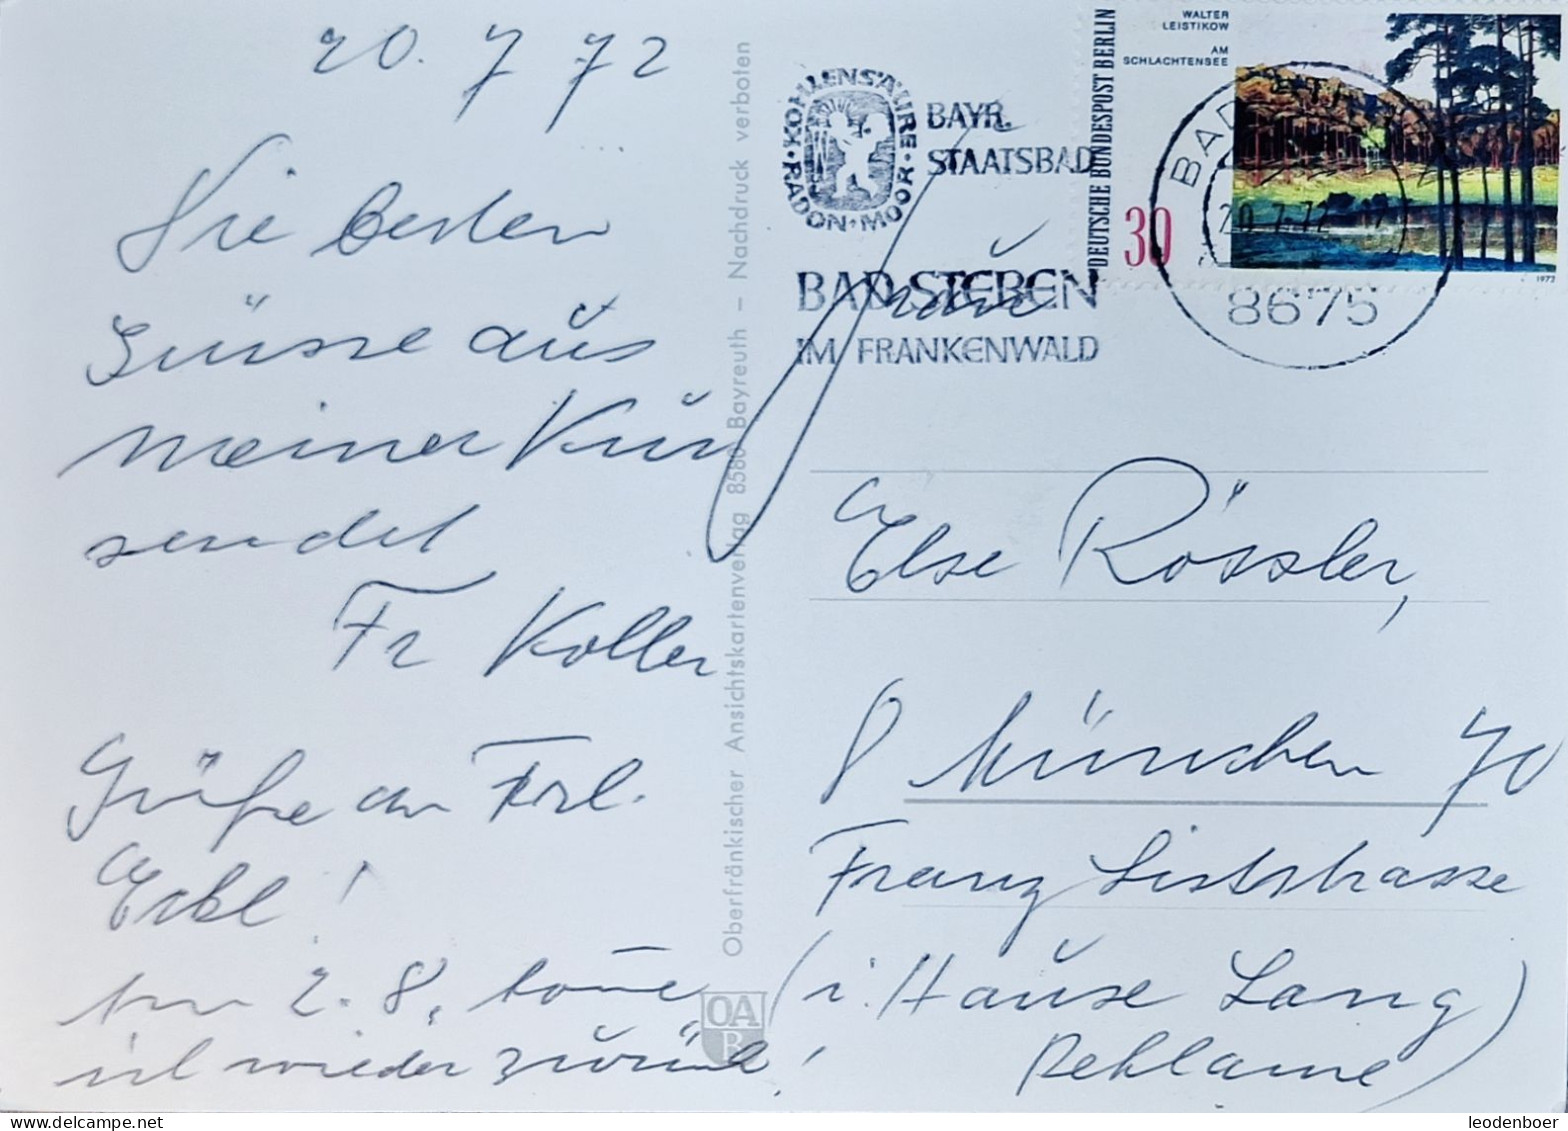 20. 7 72
Die besten
Grüsse aus
meiner Kur
sendet
Fr Koller
Grüße an Frl.
Am 2. 8. komme
ich wieder zurück!
Oberfränkischer Ansichtskartenverlag 8580 Bayreuth – Nachdruck verboten
OAB
KOHLENSÄURE · MOOR · RADON ·
BAYR.
STAATSBAD
BAD STEBEN
IM FRANKENWALD
DEUTSCHE BUNDESPOST BERLIN
30
WALTER
LEISTIKOW
AM
SCHLACHTENSEE
1972
BAD
20.7.72
8675
Frau
Else Rössler,
8 München 70
Franz Liststrasse
(i. Hause Lang
Reklame)
leodenboer